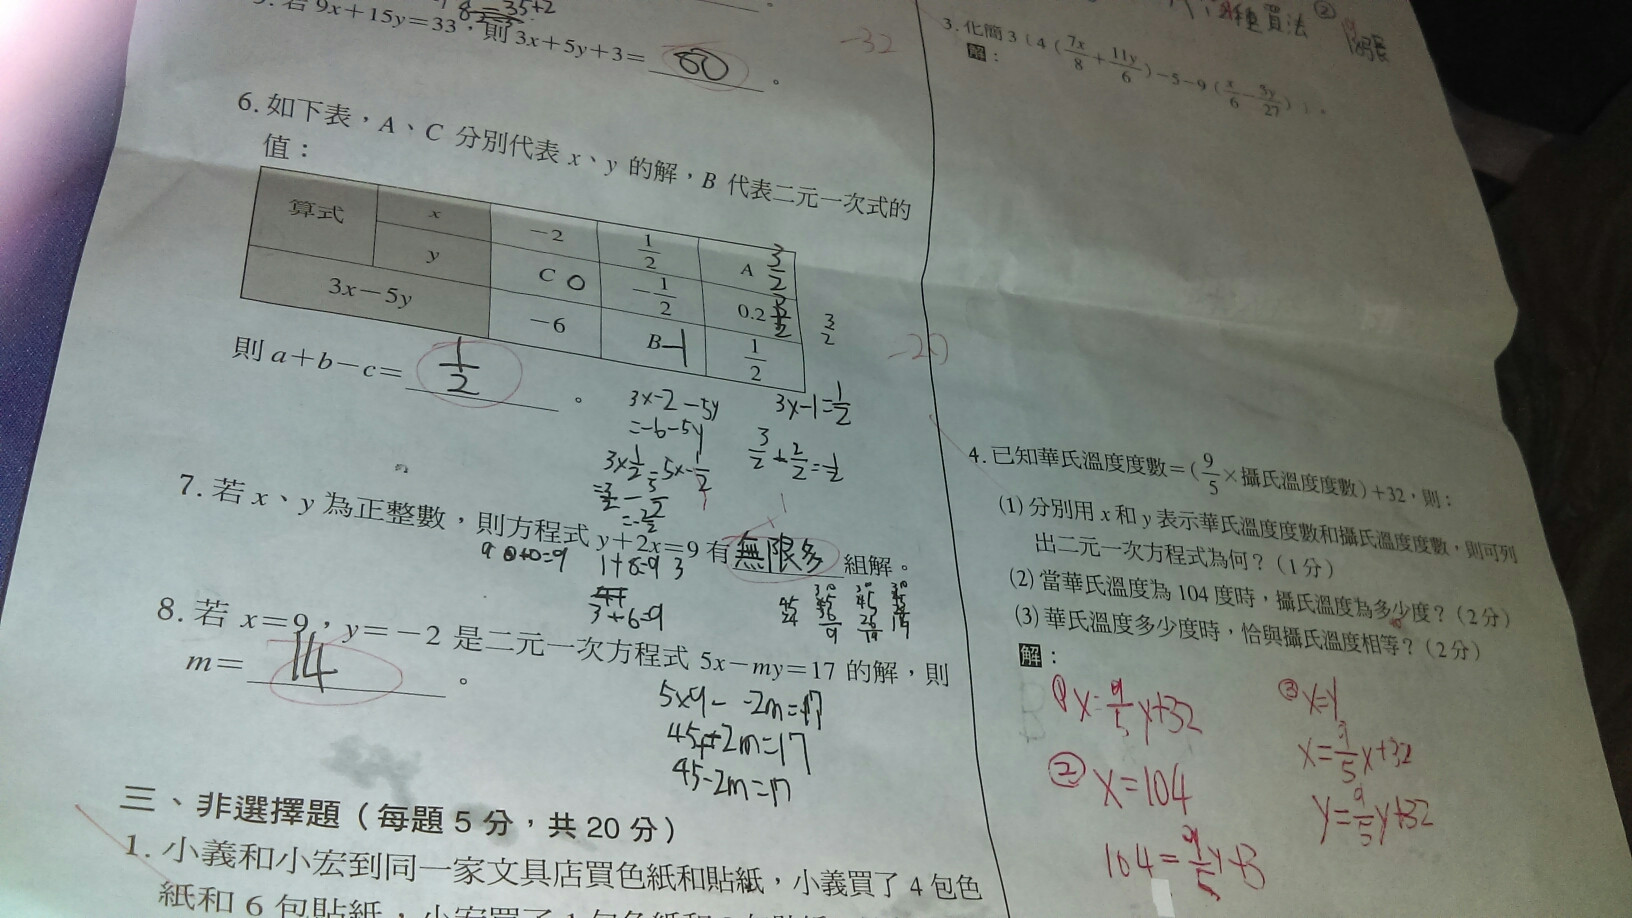 8=35+2
5. 若 9x+15y=33，則 3x+5y+3= 80 。
6. 如下表，A、C 分別代表 x、y 的解，B 代表二元一次式的
值：
算式 x -2 1/2 A 3/2
y C 0 -1/2 0.2
3x-5y -6 B -1 1/2
3/2
則 a+b-c= 1/2 。
3x-2-5y
=-6-5y
3x1/2-5x-1/2
=3/2-5/2
=-2/2
3x-1=1/2
3/2+2/2=1/2
7. 若 x、y 為正整數，則方程式 y+2x=9 有 無限多 組解。
9 0+0=9 1+8=9 3
3+6=9
8. 若 x=9，y=-2 是二元一次方程式 5x-my=17 的解，則
m= 14 。
5x9- -2m=17
45+2m=17
45-2m=17
三、非選擇題（每題 5 分，共 20 分）
1. 小義和小宏到同一家文具店買色紙和貼紙，小義買了 4 包色
紙和 6 包貼紙，
-32
-20
種買法
②
3. 化簡 3〔4（7x/8+11y/6）-5-9（x/6-5y/27）〕。
解：
4. 已知華氏溫度度數=（9/5×攝氏溫度度數）+32，則：
(1) 分別用 x 和 y 表示華氏溫度度數和攝氏溫度度數，則可列
出二元一次方程式為何？（1分）
(2) 當華氏溫度為 104 度時，攝氏溫度為多少度？（2分）
(3) 華氏溫度多少度時，恰與攝氏溫度相等？（2分）
解：
① x=9/5y+32
② x=104
104=9/5y+3
③ x=y
x=9/5x+32
y=9/5y+32